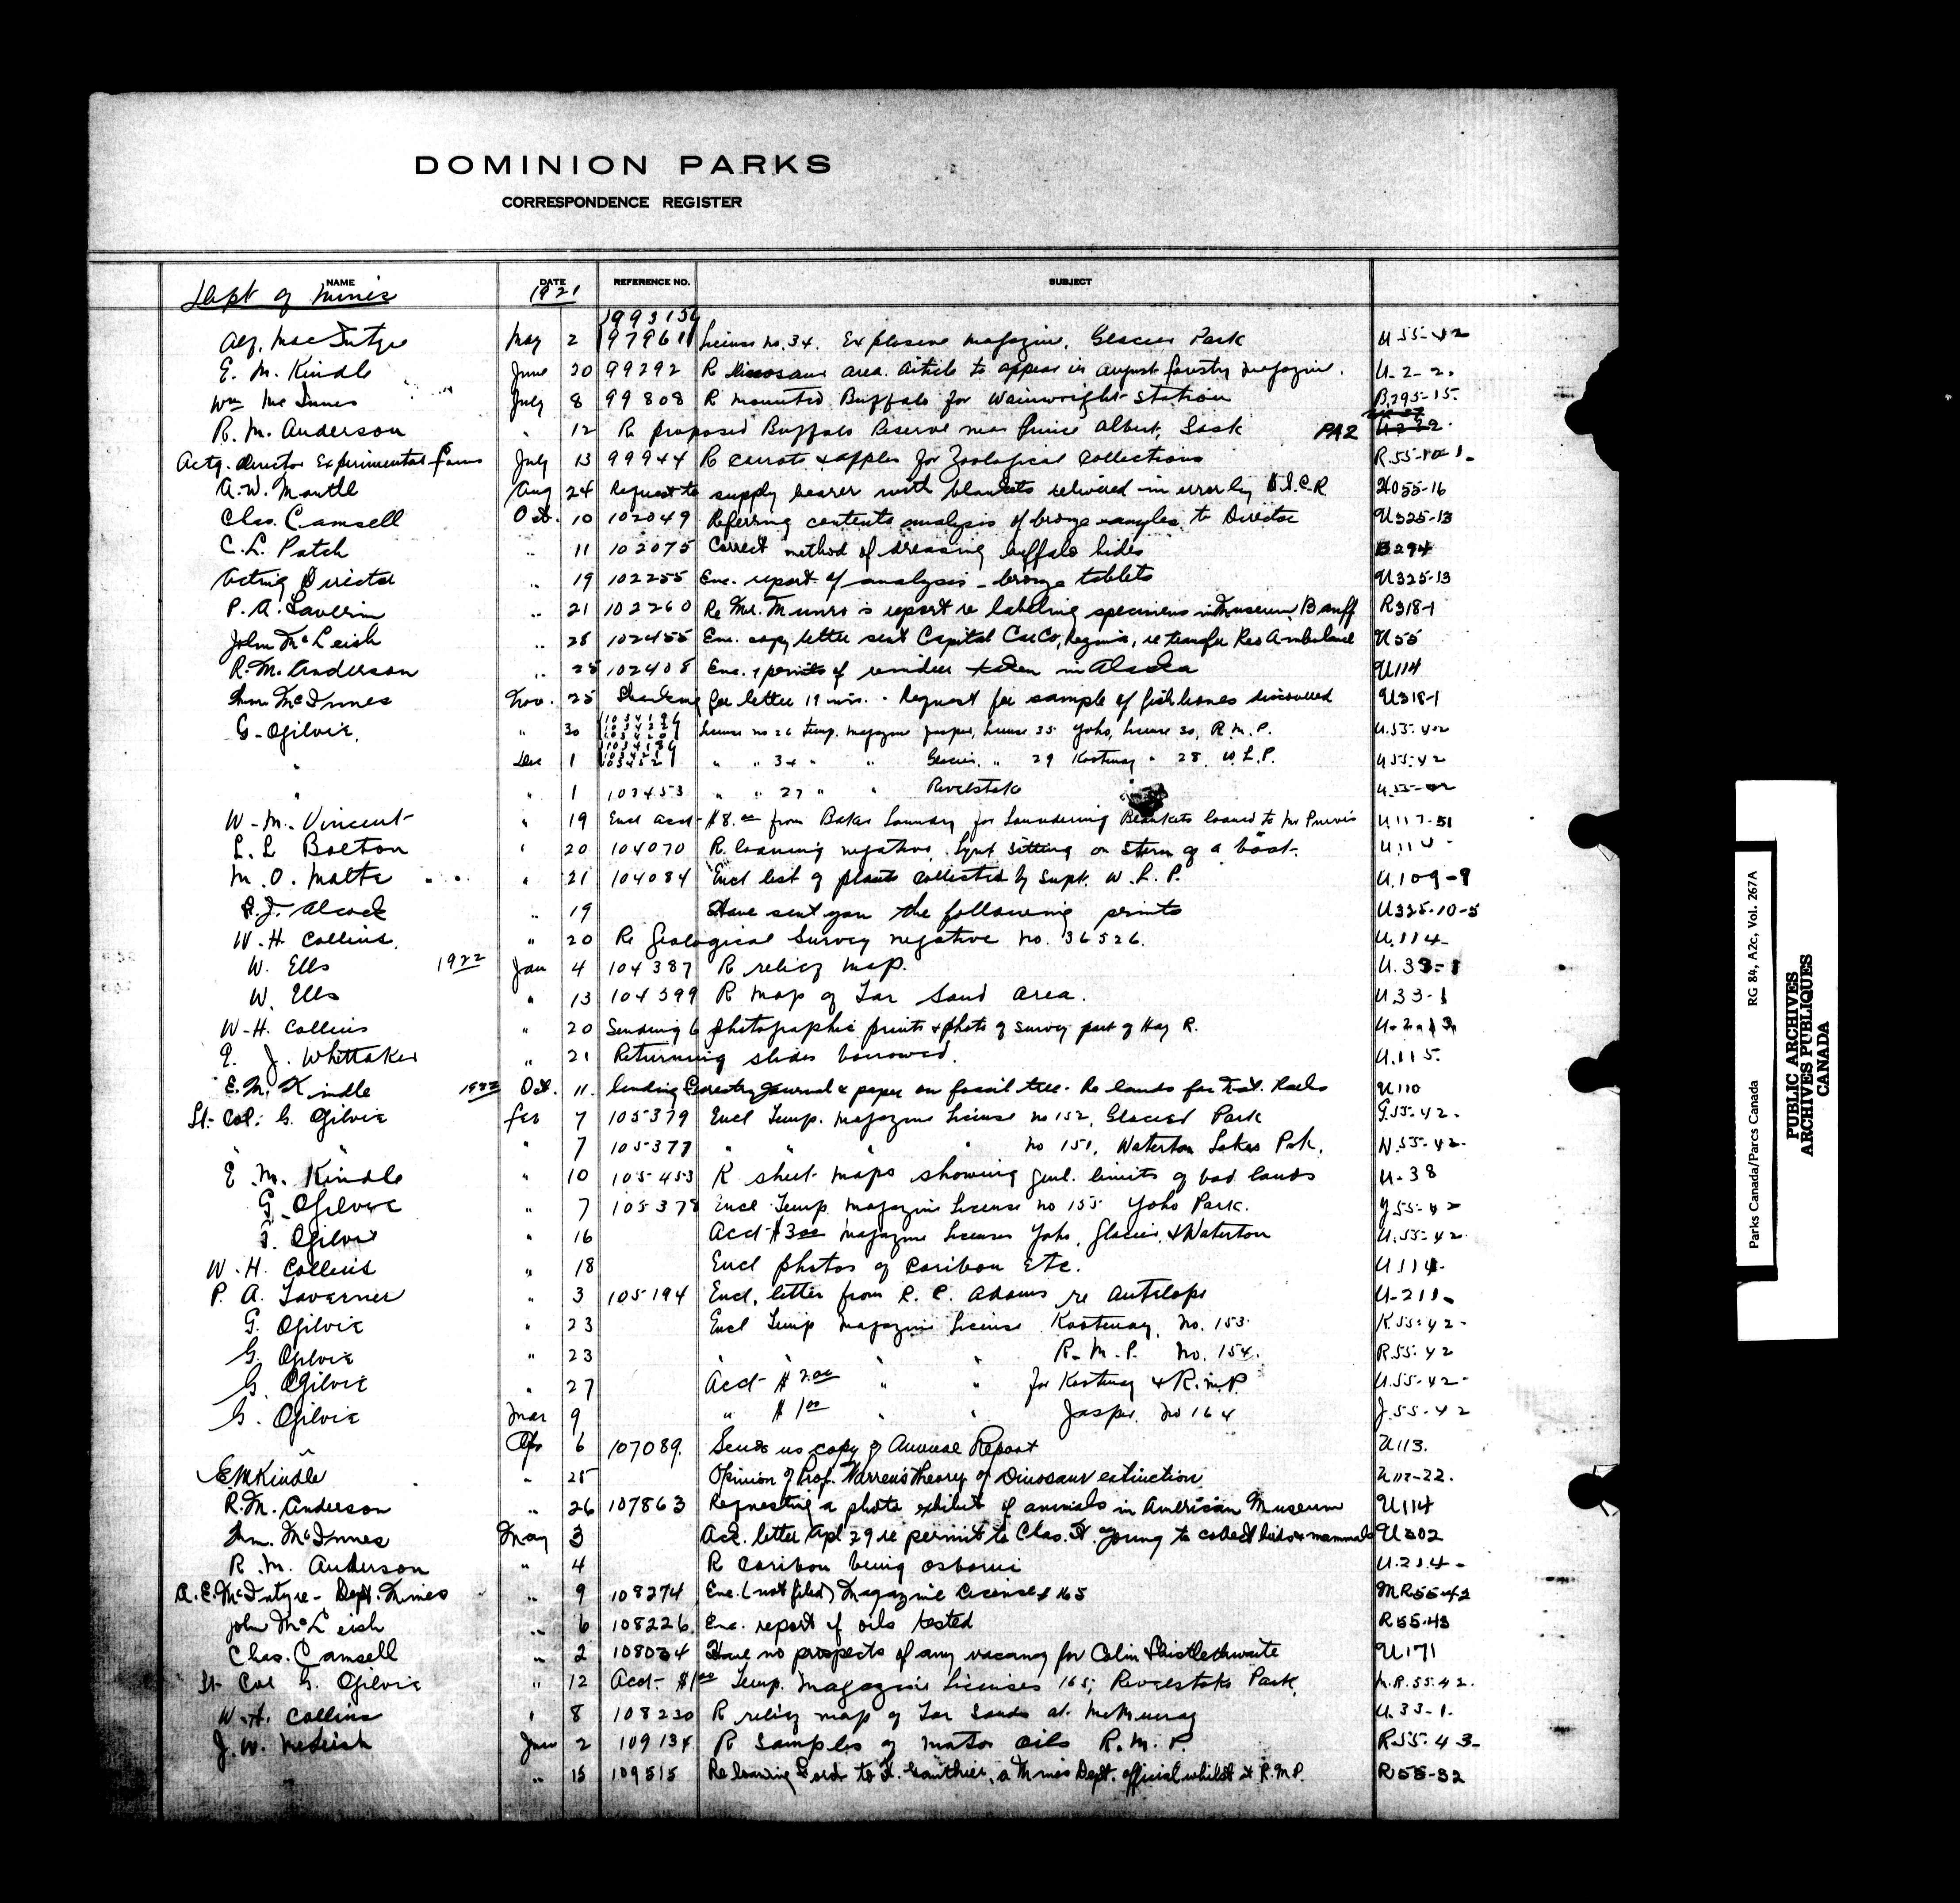 DOMINION PARKS
CORRESPONDENCE REGISTER
NAME DATE REFERENCE NO. SUBJECT
Dept of Mines 1921
May 2 97961 License no. 34. Explosive Magazine, Glacier Park U 55-42
E. M. Kindle June 20 99292 R Dinosaur area. Article to appear in August forestry magazine. U-2-2.
Wm McInnes July 8 99808 R mounted Buffalo for Wainwright Station B.295-15.
R. M. Anderson " 12 Re proposed Buffalo Reserve near Prince Albert, Sask PA2
Actg. Director Experimental Farms July 13 99944 R carrots & apples for Zoological Collections
A.W. Mantle Aug 24 Request to supply bearer with blankets delivered in error by
Chas. Camsell Oct. 10 102049 Referring contents analysis of bronze samples to Director U325-13
C. L. Patch " 11 102075 Correct method of dressing buffalo hides B294
Acting Director " 19 102255 Enc. report of analysis - bronze tablets U325-13
P. A. Taverner " 21 102260 Re Mr. Munro's report re labeling specimens in Museum, Banff R318-1
John McLeish " 28 102455 Enc. copy letter sent Capital Car Co, Regina, re transfer Reo Ambulance U55
R. M. Anderson " 25 102408 Enc. prints of reindeer taken in Alaska U114
Wm McInnes Nov. 25 Thanking for letter 19 - Request for sample of fish bones discovered U318-1
G. Ogilvie. " 30 License no 26 Temp. Magazine Jasper, License 35 Yoho, License 30, R. M. P. U.55-42
" Dec 1 " " 34 " " Glacier, " 29 Kootenay " 28, W.L.P. U55-42
" " 1 103453 " " 27 " " Revelstoke
W. M. Vincent " 19 Encl acct $8.00 from Baker Laundry for Laundering Blankets loaned to Mr Purvis U.117-51
L. L. Bolton " 20 104070 R. loaning negative. Lynx sitting on stern of a boat.
M. O. Malte " 21 104084 Encl list of plants collected by Supt. W. L. P. U.109-9
F. J. Alcock " 19 Have sent you the following prints U325-10-5
W. H. Collins. " 20 Re Geological Survey negative no. 36526. U.114-
W. Ells 1922 Jan 4 104387 R relief map. U.33-1
W. Ells " 13 104399 R Map of Tar Sand area. U33-1
W. H. Collins " 20 Sending 6 photographic prints & photo of survey part of Hay R.
E. J. Whittaker " 21 Returning slides borrowed. U.115.
E. M. Kindle 1922 Oct. 11. Sending Forestry Journal & paper on fossil tree. Re lands for Nat. Parks U110
Lt-Col: G. Ogilvie Feb 7 105379 Encl Temp. Magazine License no 152, Glacier Park G.55-42.
" " 7 105377 " " " no 151, Waterton Lakes Park.
E. M. Kindle " 10 105453 R sheet maps showing genl. limits of bad lands U-38
G. Ogilvie " 7 105378 Encl Temp. Magazine License no 155 Yoho Park. Y.55-42
G. Ogilvie " 16 Acct $3.00 Magazine Licenses Yoho, Glacier, & Waterton U.55-42.
W. H. Collins " 18 Encl photos of Caribou Etc. U114.
P. A. Taverner " 3 105194 Encl. letter from Adams re Antelope U-211.
G. Ogilvie " 23 Encl Temp Magazine License Kootenay, No. 153. K.55-42-
G. Ogilvie " 23 " " " " R. M. P. No. 154. R55-42
G. Ogilvie " 27 Acct $2.00 " " for Kootenay & R.M.P. U.55-42-
G. Ogilvie Mar 9 " $1.00 " " Jasper. No 164 J.55-42
" Apr 6 107089. Sends us copy of Annual Report U113.
E M Kindle " 25 Opinion of Prof. Warren's theory of Dinosaur extinction
R. M. Anderson " 26 107863 Requesting a photo exhibit of animals in American Museum U114
Wm. McInnes May 3 Ack. letter Apl 29 re permit to Chas. Young to collect birds & mammals U302
R. M. Anderson " 4 R Caribou being osborni U.214-
A. E. McIntyre - Dept. Mines " 9 108274 Enc. (not filed) Magazine License 165 MR55-42
John McLeish " 6 108226. Enc. report of oils tested R55-43
Chas. Camsell " 2 108034 Have no prospects of any vacancy for Colin Thistlethwaite U171
Lt Col G. Ogilvie " 12 Acct $1.00 Temp. Magazine Licenses 165; Revelstoke Park. M.R.55-42.
W. H. Collins " 8 108230 R relief map of Tar Sands at McMurray U.33-1.
J. W. McLeish June 2 109134 R Samples of motor oils R. M. P. R55-43-
" 15 109515 Re loaning Ford to Gauthier, a Mines Dept. official whilst at R.M.P. R55-32
Parks Canada/Parcs Canada RG 84, A2c, Vol. 267A
PUBLIC ARCHIVES
ARCHIVES PUBLIQUES
CANADA